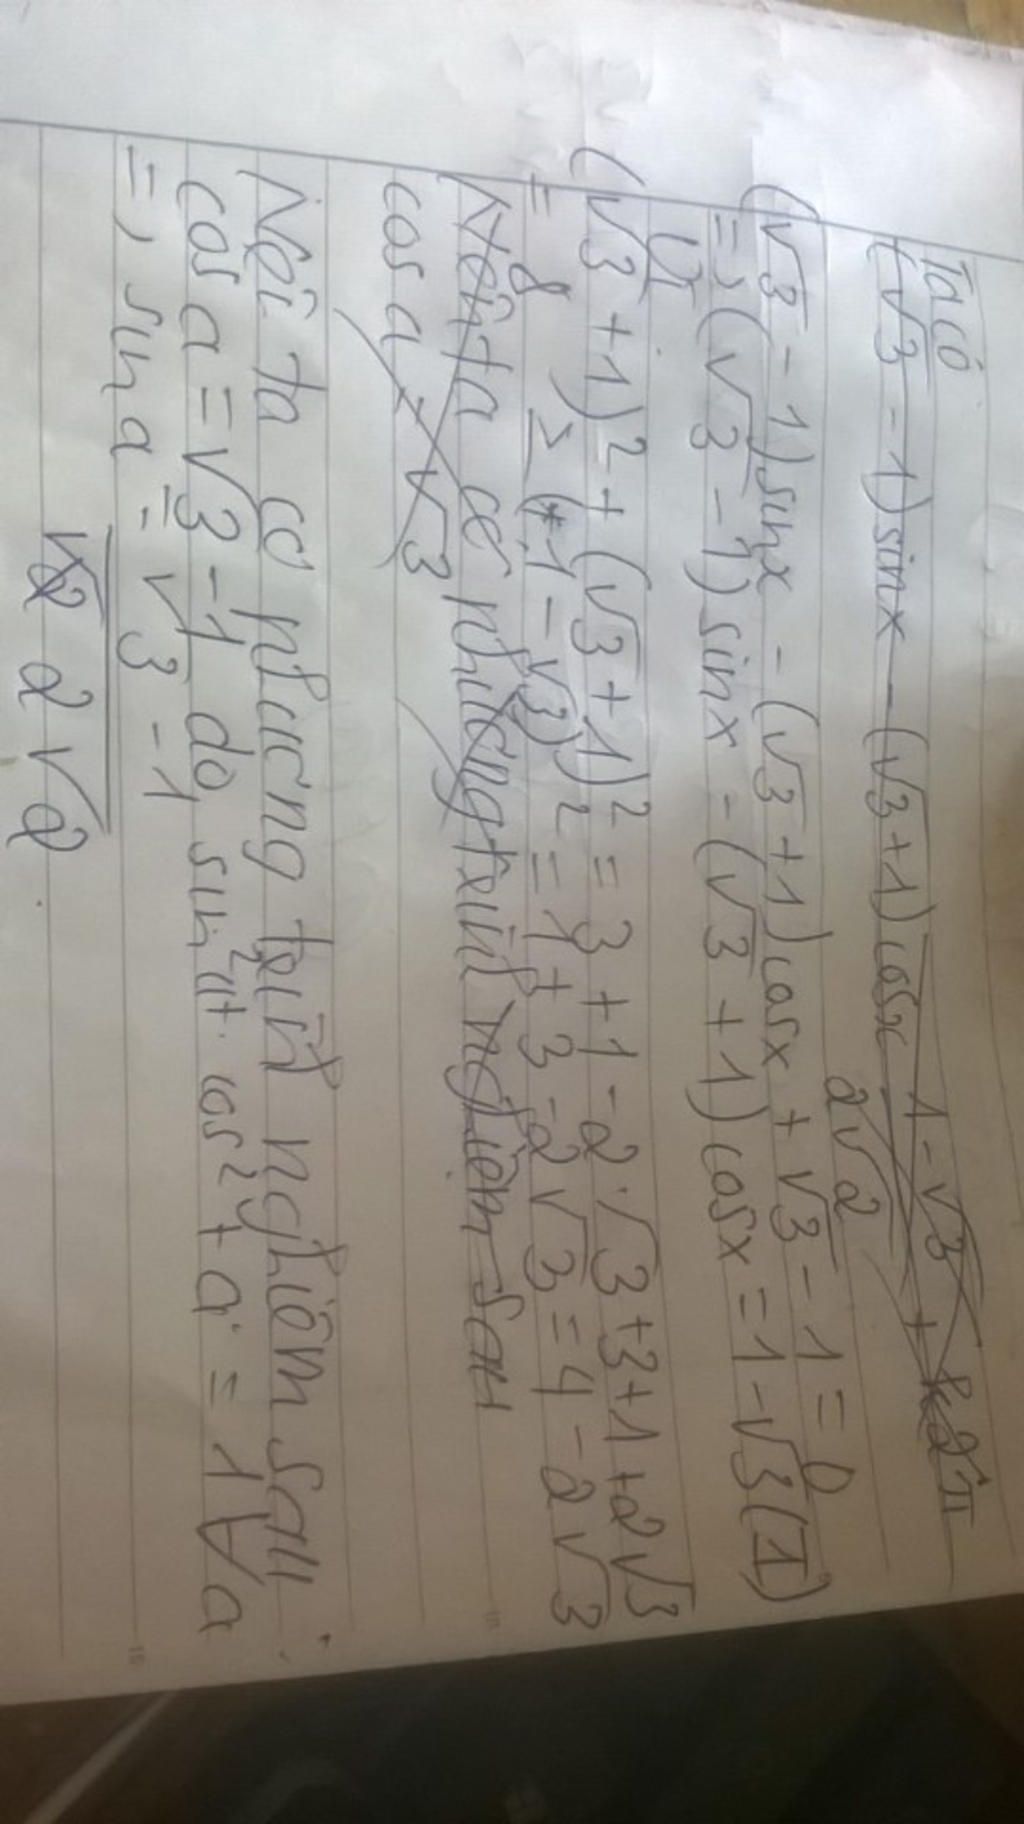 Ta có
(√3 - 1) sinx - (√3 + 1) cosx
1 - √3 + k2π
2√2
(√3 - 1) sinx - (√3 + 1) cosx + √3 - 1 = 0
=> (√3 - 1) sinx - (√3 + 1) cosx = 1 - √3 (1)
(√3 + 1)² + (√3 + 1)² = 3 + 1 - 2√3 + 3 + 1 + 2√3
= 8 ≥ (1 - √3)² = 1 + 3 - 2√3 = 4 - 2√3
Nên ta có phương trình nghiệm sau
cos a √3
Nên ta có phương trình nghiệm sau:
cos a = √3 - 1 do sin² a + cos² + a = 1 ∀ a
=> sin a = √3 - 1
√2 2√2